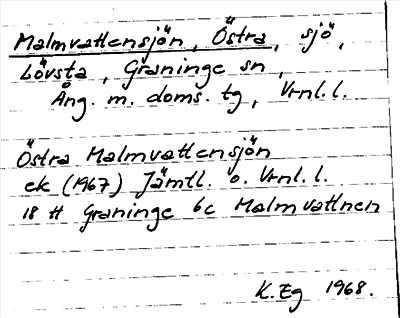 Malmvattensjön, Östra, sjö,
Lövsta, Graninge sn,
Ång. m. doms. tg, Vrnl. l.
Östra Malmvattensjön
ek (1967) Jämtl. o. Vrnl. l.
18 H Graninge 6c Malmvattnen
K. Eg 1968.